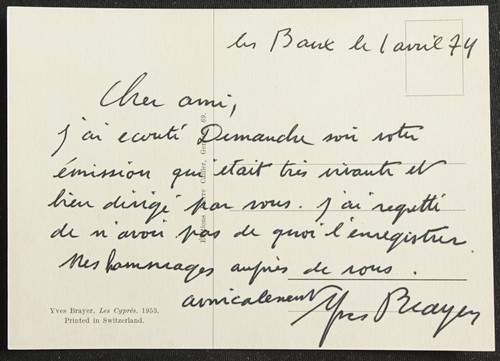 les Baux le 1 avril 74
Cher ami,
j'ai ecouté Dimanche soir votre
émission qui était très vivante et
bien dirigé par vous. j'ai regretté
de n'avoir pas de quoi l'enregistrer.
Mes hommages auprès de vous.
amicalement Yves Brayer
Yves Brayer, Les Cyprès. 1953.
Printed in Switzerland.